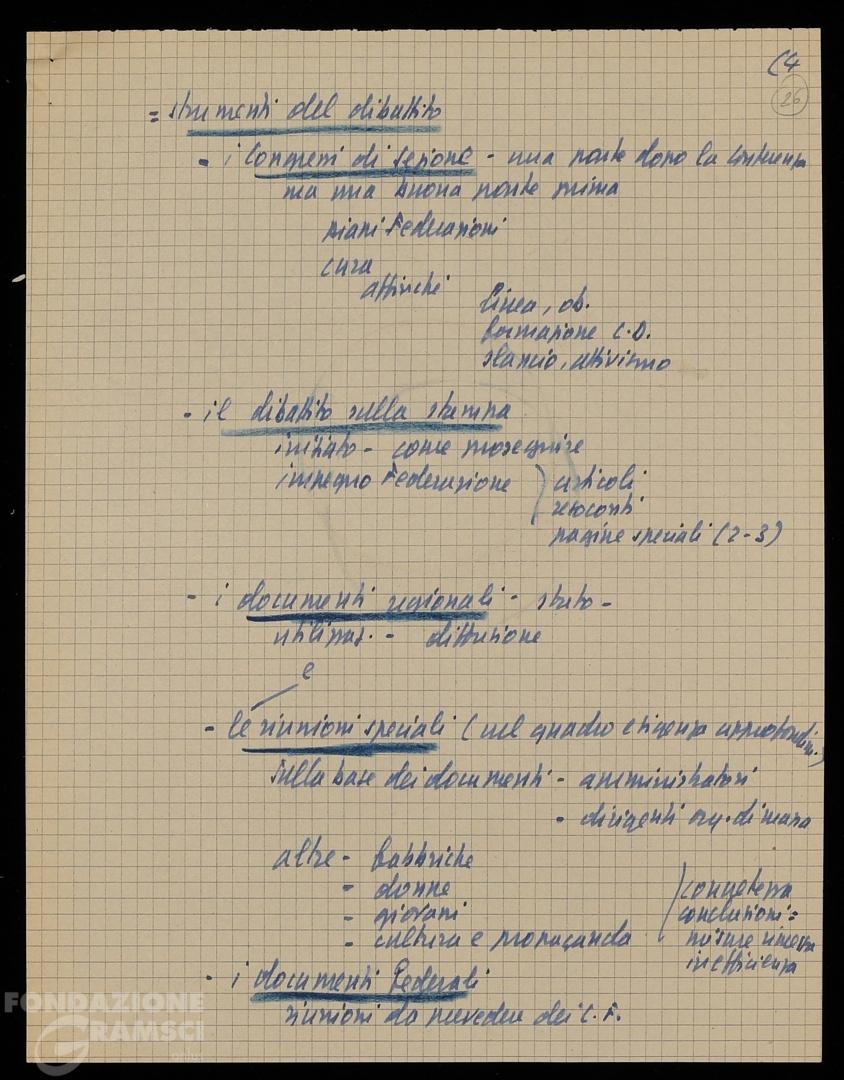 (4
26
= strumenti del dibattito
- i Congressi di Sezione - una parte dopo la Conferenza
ma una buona parte prima
piani Federazioni
cura
affinché
linea, ob.
formazione C.D.
slancio, attivismo
- il dibattito sulla stampa
iniziato - come proseguire
impegno Federazione } articoli
resoconti
pagine speciali (2-3)
- i documenti regionali - stato -
utilizzaz. - diffusione
e
- le riunioni speciali (nel quadro esigenza approfondim.)
sulla base dei documenti - amministratori
- dirigenti org. di massa
altre - fabbriche
- donne
- giovani
- cultura e propaganda
concretezza
conclusioni =
misure rimessa
in efficienza
- i documenti Federali
riunioni da prevedere dei C.F.
FONDAZIONE
GRAMSCI